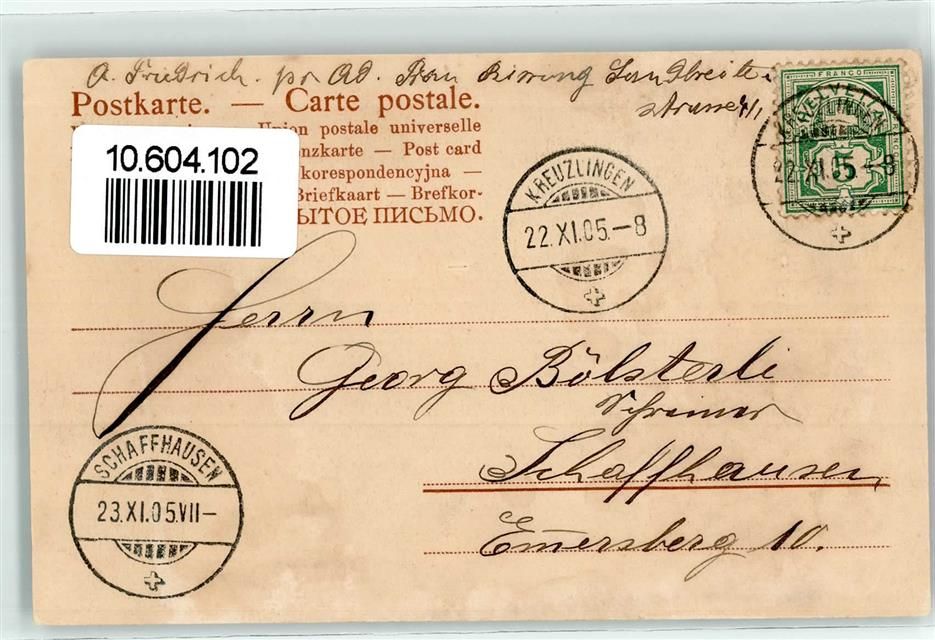 A. Friedrich. pr Ad. Frau
Postkarte. — Carte postale.
Union postale universelle
nzkarte — Post card
korespondencyjna —
Briefkaart — Brefkor-
ЫТОЕ ПИСЬМО.
10.604.102
FRANCO
HELVETIA
KREUZLINGEN
22.XI.05.–8
5
KREUZLINGEN
22.XI.05.–8
Herrn
Georg Bölsterli
Schreiner
Schaffhausen
Emmersberg 10.
SCHAFFHAUSEN
23.XI.05.VII–